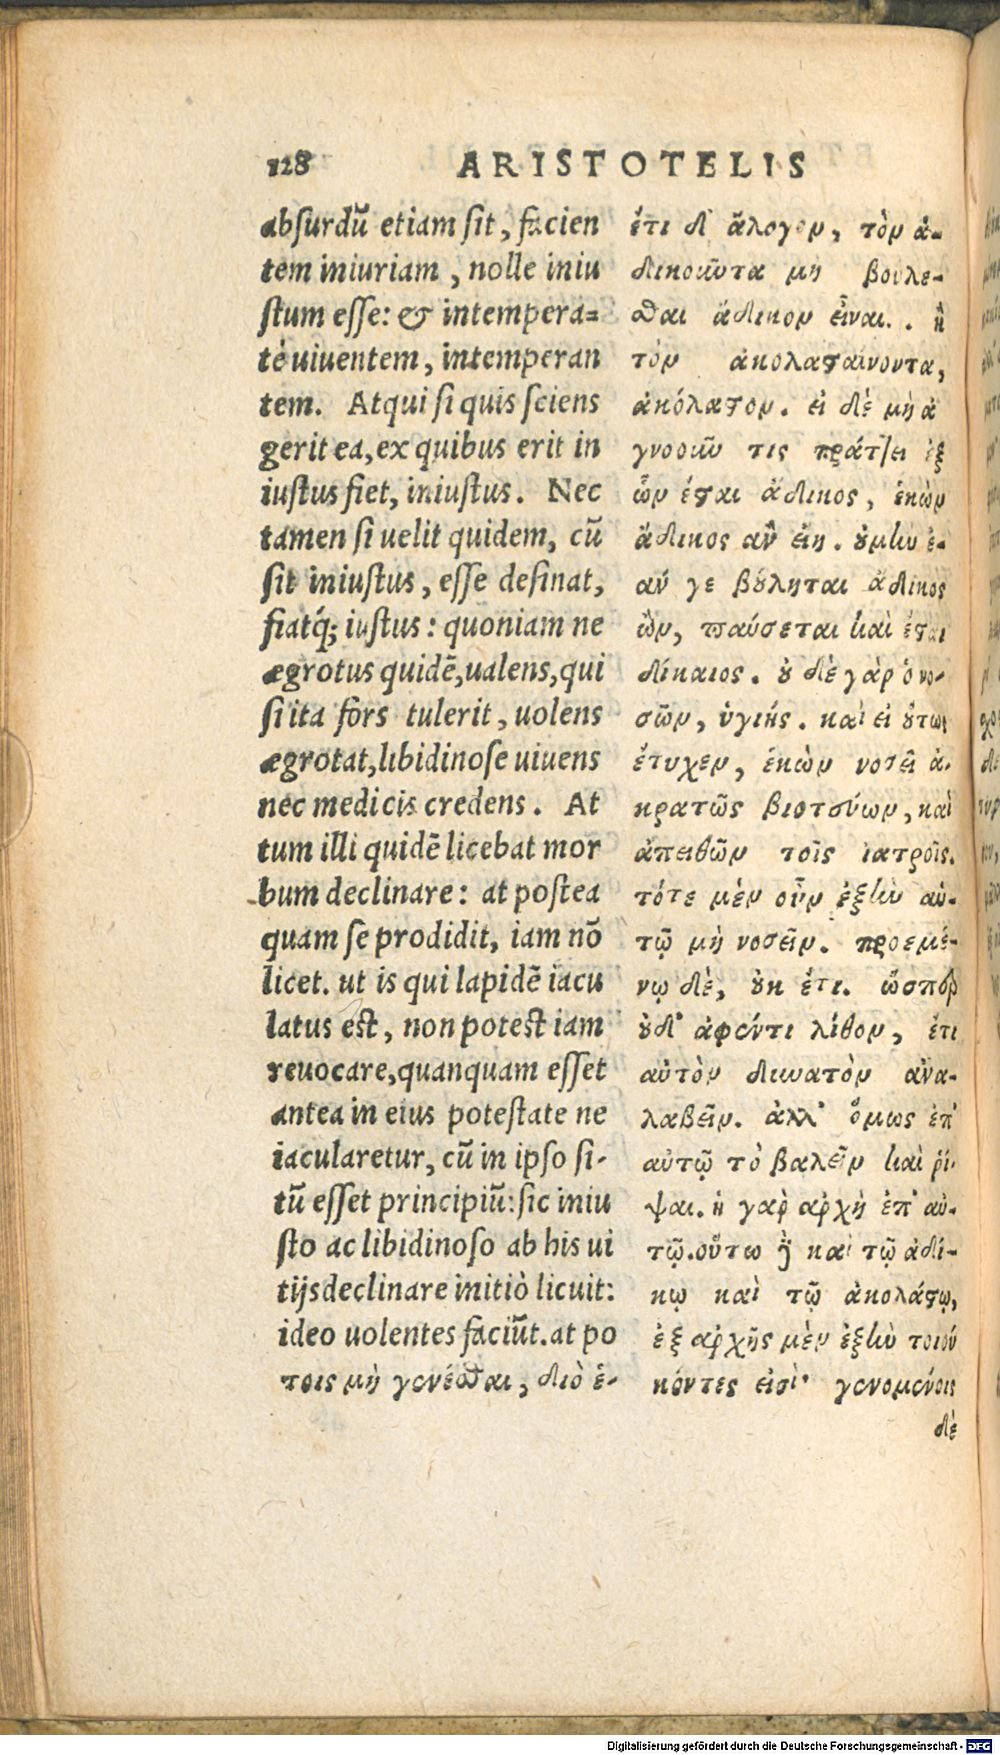 128 ARISTOTELIS
absurdũ etiam sit, facien
tem iniuriam , nolle iniu
stum esse: & intempera=
tè uiuentem, intemperan
tem. Atqui si quis sciens
gerit ea, ex quibus erit in
iustus fiet, iniustus. Nec
tamen si uelit quidem, cũ
sit iniustus, esse desinat,
fiatq́; iustus: quoniam ne
ægrotus quidẽ, ualens, qui
si ita fors tulerit, uolens
ægrotat, libidinose uiuens
nec medicis credens. At
tum illi quidẽ licebat mor
bum declinare: at postea
quam se prodidit, iam nõ
licet. ut is qui lapidẽ iacu
latus est, non potest iam
reuocare, quanquam esset
antea in eius potestate ne
iacularetur, cũ in ipso si-
tũ esset principiũ: sic iniu
sto ac libidinoso ab his ui
tijs declinare initiò licuit:
ideo uolentes faciũt. at po
τοις μὴ γενέσθαι, διὸ ἑ-
ἔτι δ' ἄλογον, τὸν ἀ-
δικοῦντα μὴ βούλε-
σθαι ἄδικον εἶναι. . ἢ
τὸν ἀκολασταίνοντα,
ἀκόλαστον. εἰ δὲ μὴ ἀ
γνοοῦν τις πράττει ἐξ
ὧν ἔσται ἄδικος, ἑκὼν
ἄδικος ἂν εἴη. οὐ μὴν ἐ-
άν γε βούληται ἄδικος
ὢν, παύσεται καὶ ἔσται
δίκαιος. οὐδὲ γὰρ ὁ νο-
σῶν, ὑγιής. καὶ εἰ οὕτως
ἔτυχεν, ἑκὼν νοσεῖ ἀ-
κρατῶς βιοτεύων, καὶ
ἀπειθῶν τοῖς ἰατροῖς.
τότε μὲν οὖν ἐξῆν αὐ-
τῷ μὴ νοσεῖν. προεμέ-
νῳ δὲ, οὐκ ἔτι. ὥσπερ
οὐδ' ἀφέντι λίθον, ἔτι
αὐτὸν δυνατὸν ἀνα-
λαβεῖν. ἀλλ' ὅμως ἐπ'
αὐτῷ τὸ βαλεῖν καὶ ῥί-
ψαι. ἡ γὰρ ἀρχὴ ἐπ' αὐ-
τῷ. οὕτω δὲ καὶ τῷ ἀδί-
κῳ καὶ τῷ ἀκολάστῳ,
ἐξ ἀρχῆς μὲν ἐξῆν τοιού
κόντες εἰσὶ· γενομένοις
δὲ
Digitalisierung gefördert durch die Deutsche Forschungsgemeinschaft - DFG